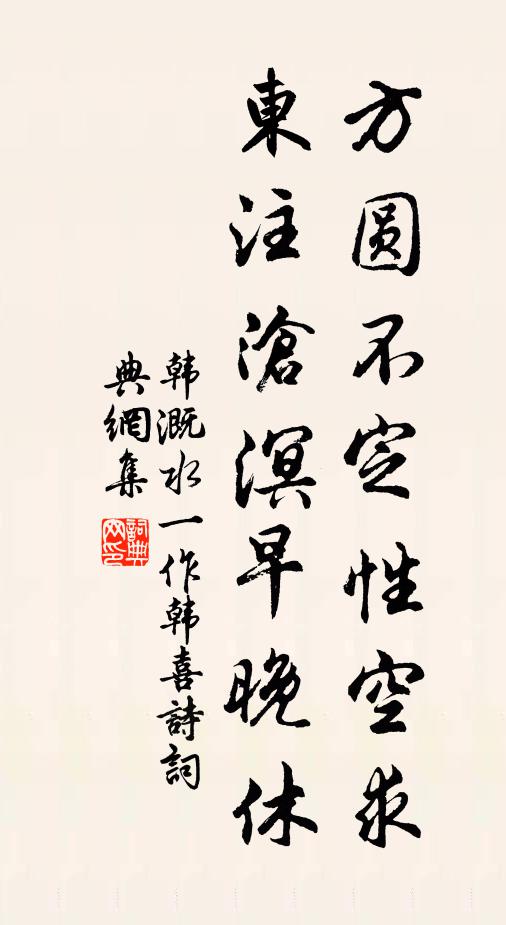 方圆不定性空求
東注滄溟早晚休
韩溉水一作韩喜詩詞
典網集
詞典网印